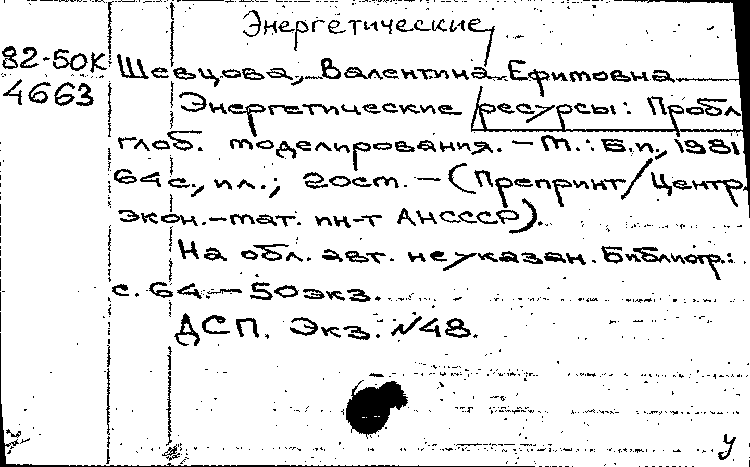 Энергетические
82-50К
4663
Шевцова, Валентина Ефимовна
Энергетические ресурсы: Пробл
глоб. моделирования. - М.: Б.и., 1981.
64с., ил.; 20см. - (Препринт/Центр.
экон.-мат. ин-т АНСССР).
На обл. авт. не указан. Библиогр.:
с. 64. - 50экз.
ДСП. Экз. №48.
У